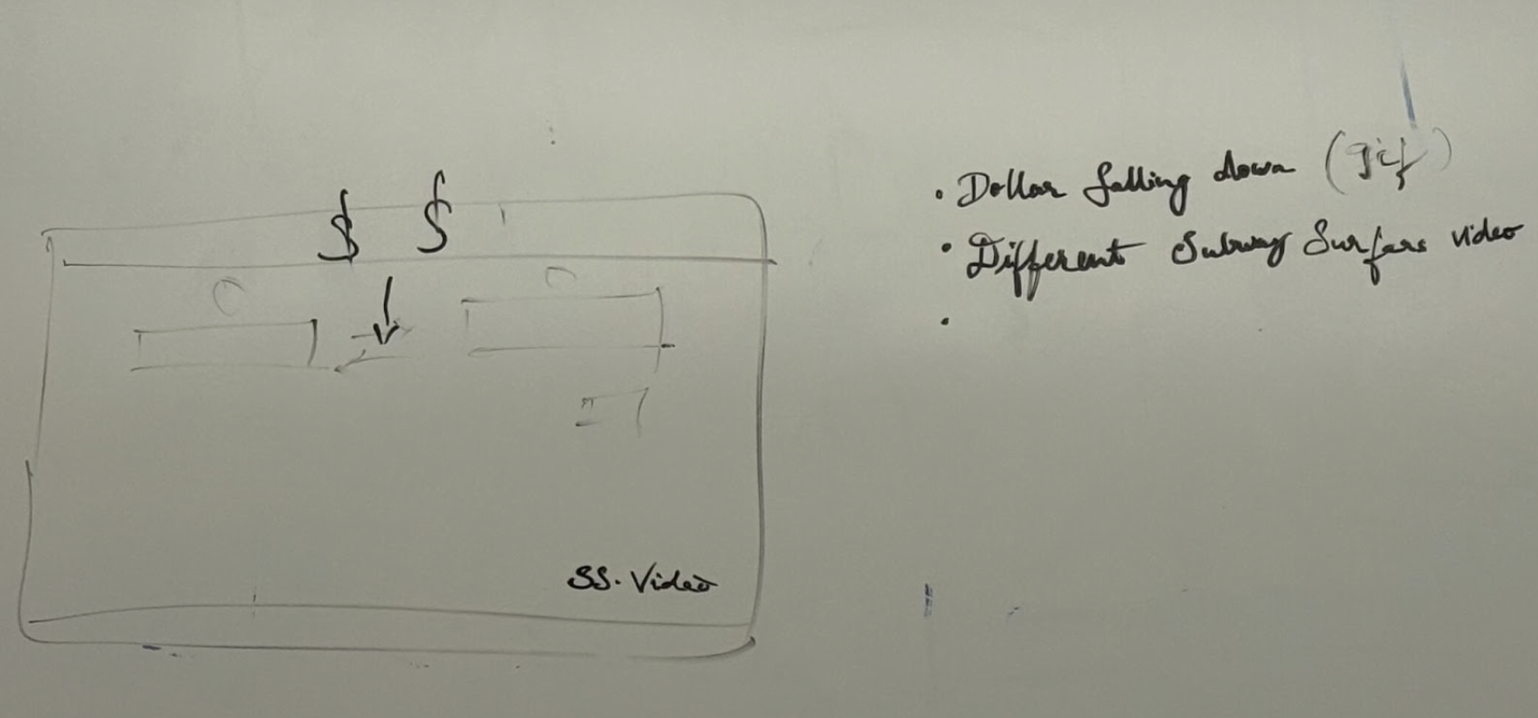 $ $
SS. Video
• Dollar falling down (gif)
• Different Subway Surfars video
•